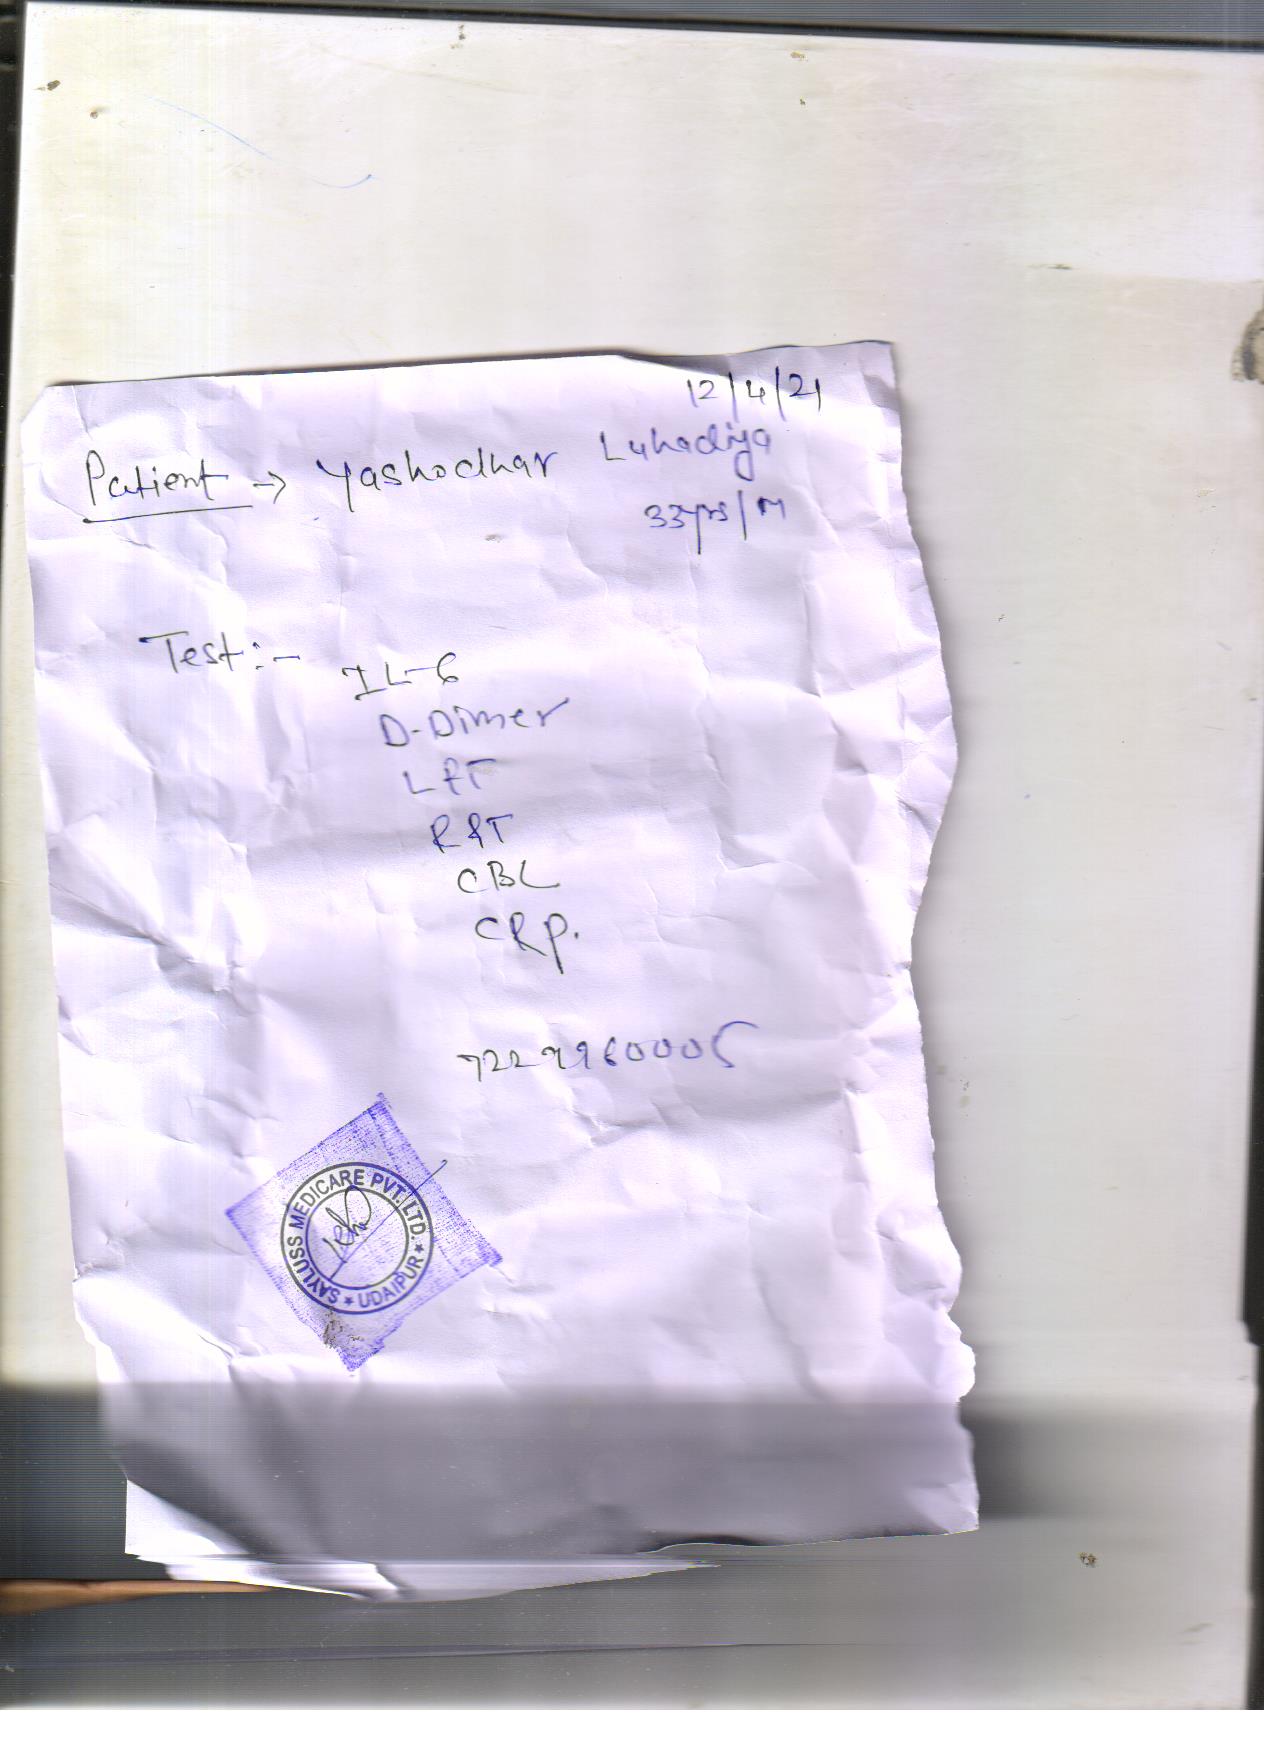 12/4/21
Patient → Yashodhar Luhadiya
33yrs/M
Test:-
IL-6
D-Dimer
LFT
RFT
CBC
CRP.
7229960005
SAYLUSS MEDICARE PVT. LTD.
★ UDAIPUR ★